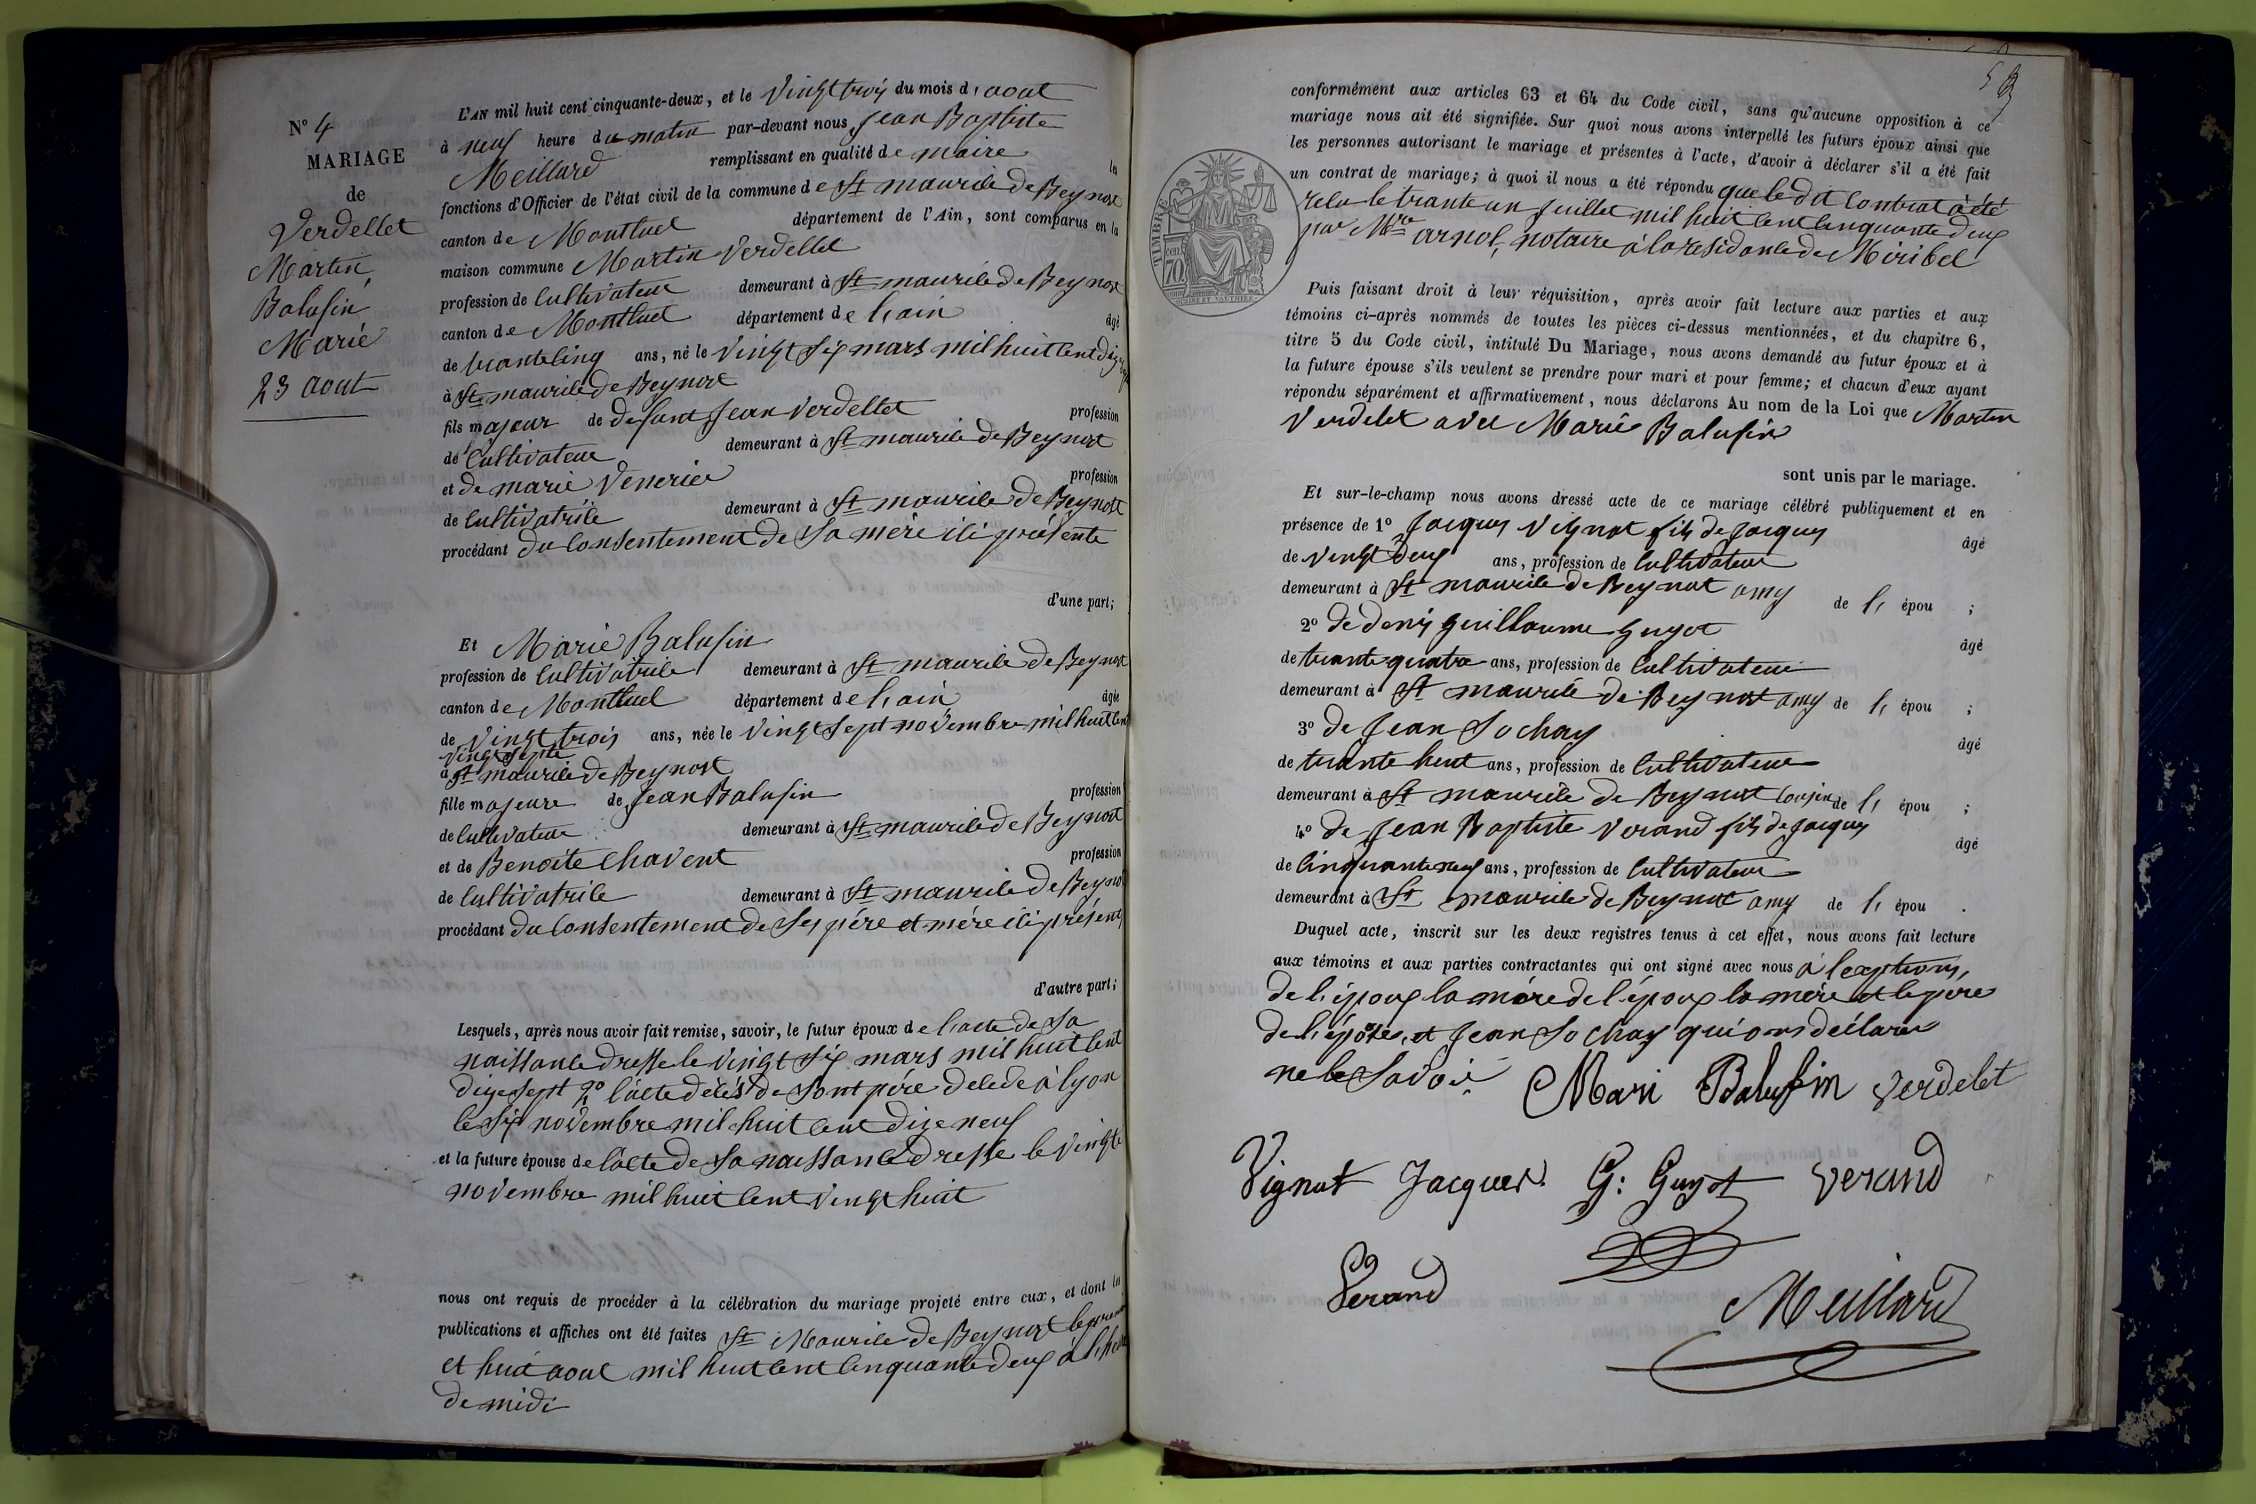 N° 4
MARIAGE
de
Verdellet
Martin,
Balufin
Marie
23 aout
L'AN mil huit cent cinquante-deux, et le vingt trois du mois d'aout
à neuf heure du matin par-devant nous Jean Baptiste
Meillard remplissant en qualité de maire les
fonctions d'Officier de l'état civil de la commune de St maurice de Beynost
canton de Montluel département de l'Ain, sont comparus en la
maison commune Martin Verdellet
profession de Cultivateur demeurant à St maurice de Beynost
canton de Montluel département de l'ain âgé
de trante cinq ans, né le vingt six mars mil huit cent dix sept
à St maurice de Beynost
fils majeur de defunt Jean Verdellet profession
de Cultivateur demeurant à St maurice de Beynost
et de marie Venerier profession
de Cultivatrice demeurant à St maurice de Beynost
procédant du Consentement de Sa mère ici présente
d'une part;
Et Marie Balufin
profession de Cultivatrice demeurant à St maurice de Beynost
canton de Montluel département de l'ain âgée
de vingt trois ans, née le vingt sept novembre mil huit cent
vingt
à St maurice de Beynost
fille majeure de Jean Balufin profession
de Cultivateur demeurant à St maurice de Beynost
et de Benoite Chavent profession
de Cultivatrice demeurant à St maurice de Beynost
procédant du Consentement de Ses pére et mére ici présents
d'autre part;
Lesquels, après nous avoir fait remise, savoir, le futur époux de l'acte de Sa
naissance dresse le vingt six mars mil huit cent
dize sept 2° l'acte de décés de Sont pére décédé à lyon
le six novembre mil huit cent dize neuf
et la future épouse de l'acte de Sa naissance dresse le vingt
novembre mil huit cent vingt huit
nous ont requis de procéder à la célébration du mariage projeté entre eux, et dont les
publications et affiches ont été faites St Maurice de Beynost le premier
et huit aout mil huit cent cinquante deux à l'heure
de midi
conformément aux articles 63 et 64 du Code civil, sans qu'aucune opposition à ce
mariage nous ait été signifiée. Sur quoi nous avons interpellé les futurs époux ainsi que
les personnes autorisant le mariage et présentes à l'acte, d'avoir à déclarer s'il a été fait
un contrat de mariage; à quoi il nous a été répondu que le dit Contrat à été
reçu le trante un Juillet mil huit cent cinquante deux
par Mre arnol, notaire à la residance de Miribel
TIMBRE
70
Puis faisant droit à leur réquisition, après avoir fait lecture aux parties et aux
témoins ci-après nommés de toutes les pièces ci-dessus mentionnées, et du chapitre 6,
titre 5 du Code civil, intitulé Du Mariage, nous avons demandé au futur époux et à
la future épouse s'ils veulent se prendre pour mari et pour femme; et chacun d'eux ayant
répondu séparément et affirmativement, nous déclarons Au nom de la Loi que Martin
Verdelet avec Marie Balufin
sont unis par le mariage.
Et sur-le-champ nous avons dressé acte de ce mariage célébré publiquement et en
présence de 1° Jacques Vignat fils de Jacques âgé
de vingt deux ans, profession de Cultivateur
demeurant à St maurice de Beynost amy de l' épou ;
2° de denis guillaume Guyot âgé
de trante quatre ans, profession de Cultivateur
demeurant à St maurice de Beynost amy de l' épou ;
3° de Jean Sochay âgé
de trante huit ans, profession de Cultivateur
demeurant à St maurice de Beynost Cousin de l' épou ;
4° de Jean Baptiste Verand fils de Jacques âgé
de cinquante neuf ans, profession de Cultivateur
demeurant à St maurice de Beynost amy de l' épou .
Duquel acte, inscrit sur les deux registres tenus à cet effet, nous avons fait lecture
aux témoins et aux parties contractantes qui ont signé avec nous à l'exeptions,
de l'époux la mére de l'époux la mére et le pere
de l'épose, et Jean Sochay qui ons déclarer
ne le Savoir
Mari Balufin Verdelet
Vignat Jacques G: Guyot Verand
Verand
Meillard